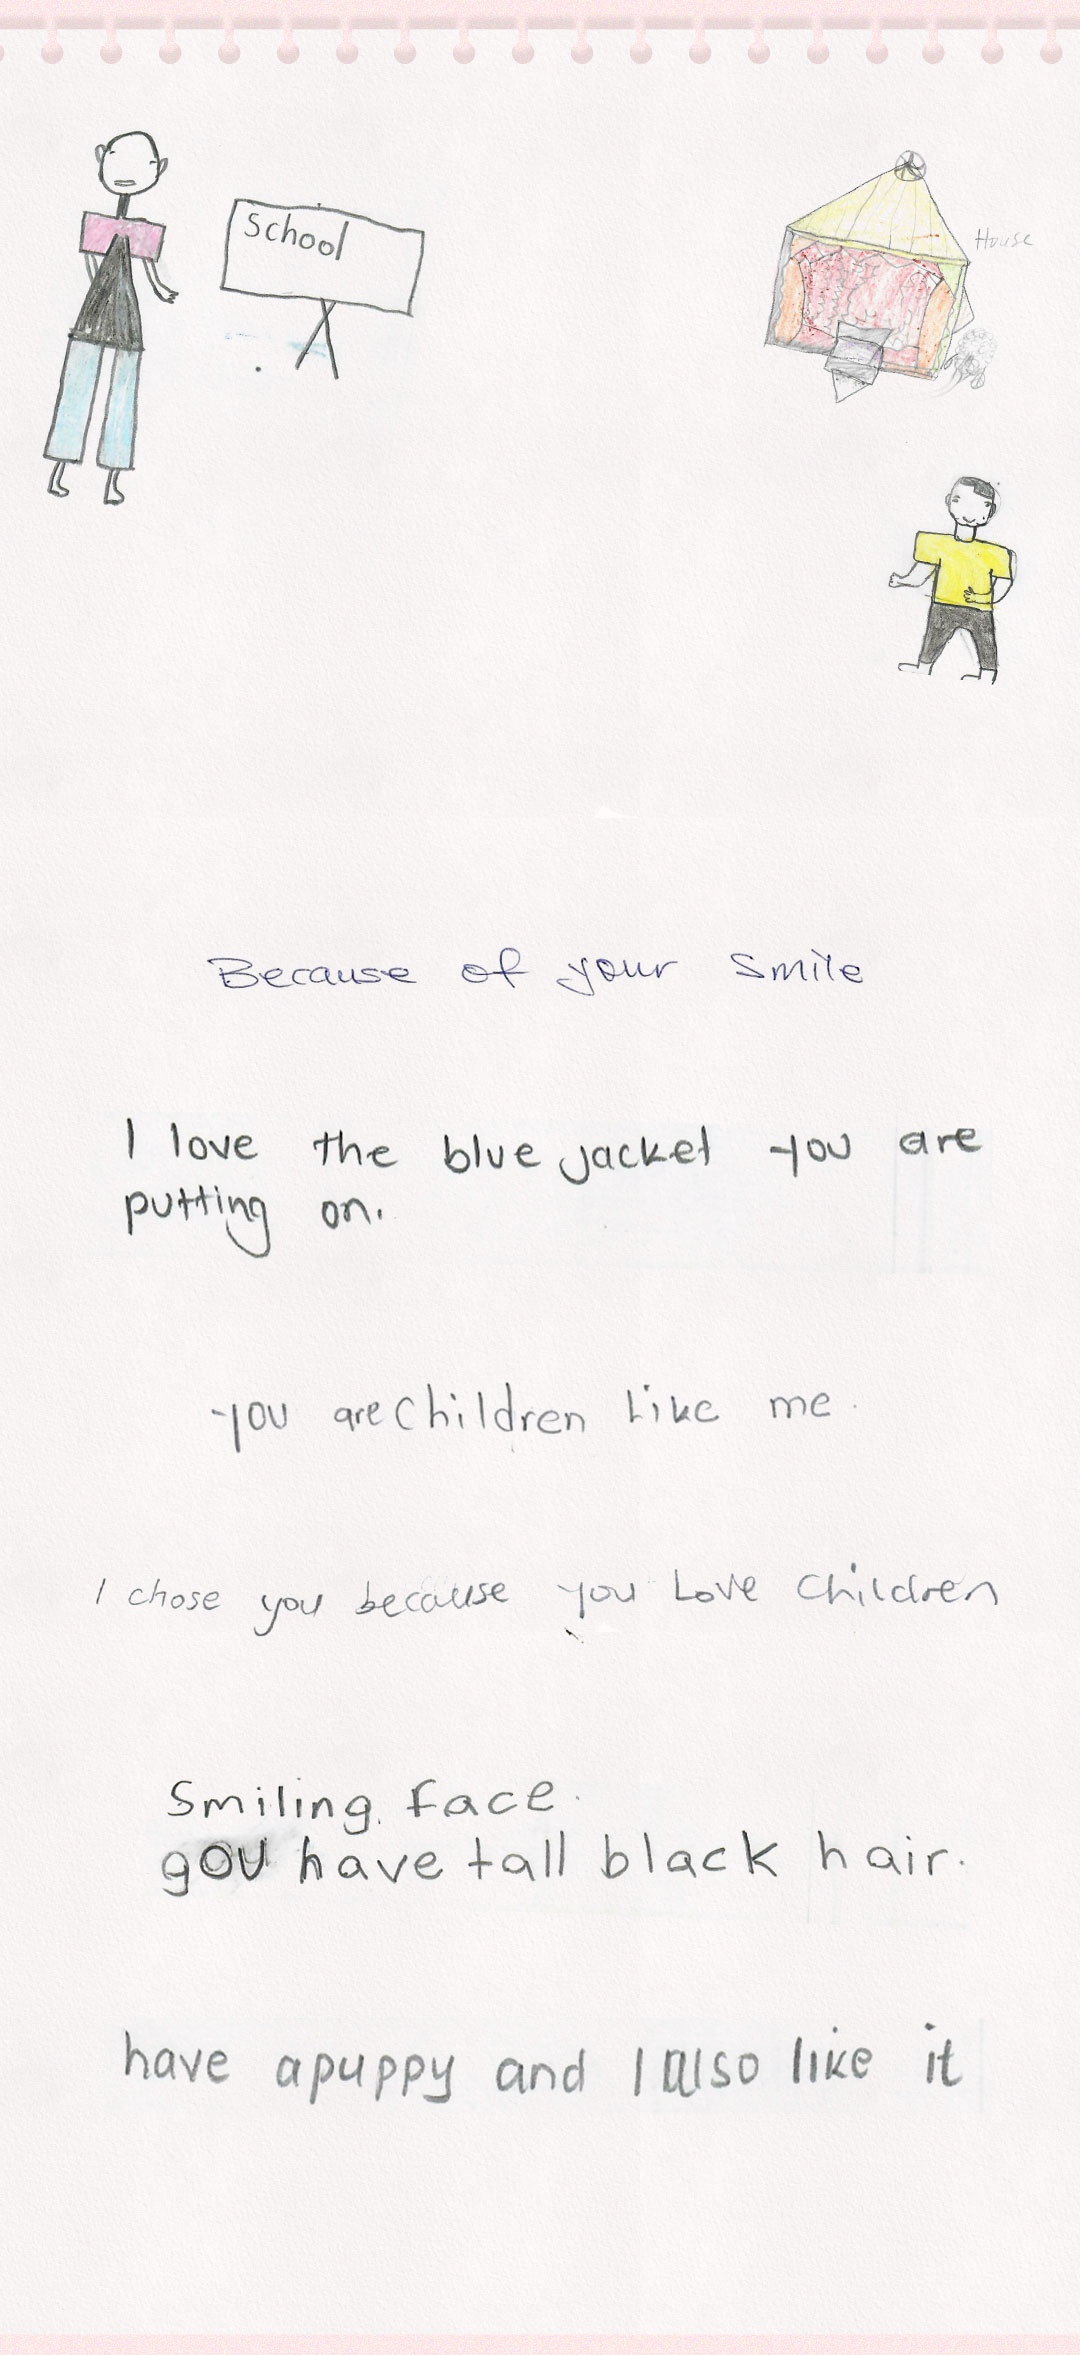 School
House
Because of your Smile
I love the blue jacket you are
putting on.
you are children like me.
I chose you because you Love children
Smiling face.
you have tall black hair.
have a puppy and I also like it